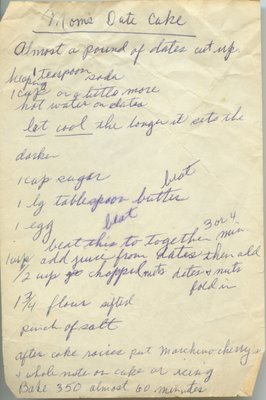 Mom's Date Cake
Almost a pound of dates cut up
heaping 1 teaspoon soda
1 cup or a little more
hot water on dates
let cool the longer it sets the
darker
1 cup sugar
1 lg tablespoon butter beat
1 egg beat
beat this to together 3 or 4 min.
add juice from dates then add
1/2 cup chopped nuts dates & nuts
fold in
1 3/4 flour sifted
pinch of salt
after cake raises put Marchino cherry's
& whole nuts on cake or icing
Bake 350 almost 60 minutes